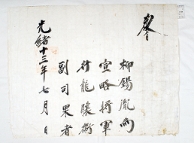 柳錫胤爲
宣略將軍
行龍驤衛
副司果者
光緖十三年七月 日